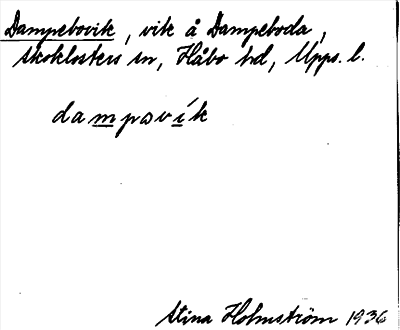 Dampebovik, vik å Dampeboda,
Skoklosters sn, Håbo hd, Upps. l.
dampəvík
Stina Holmström 1936